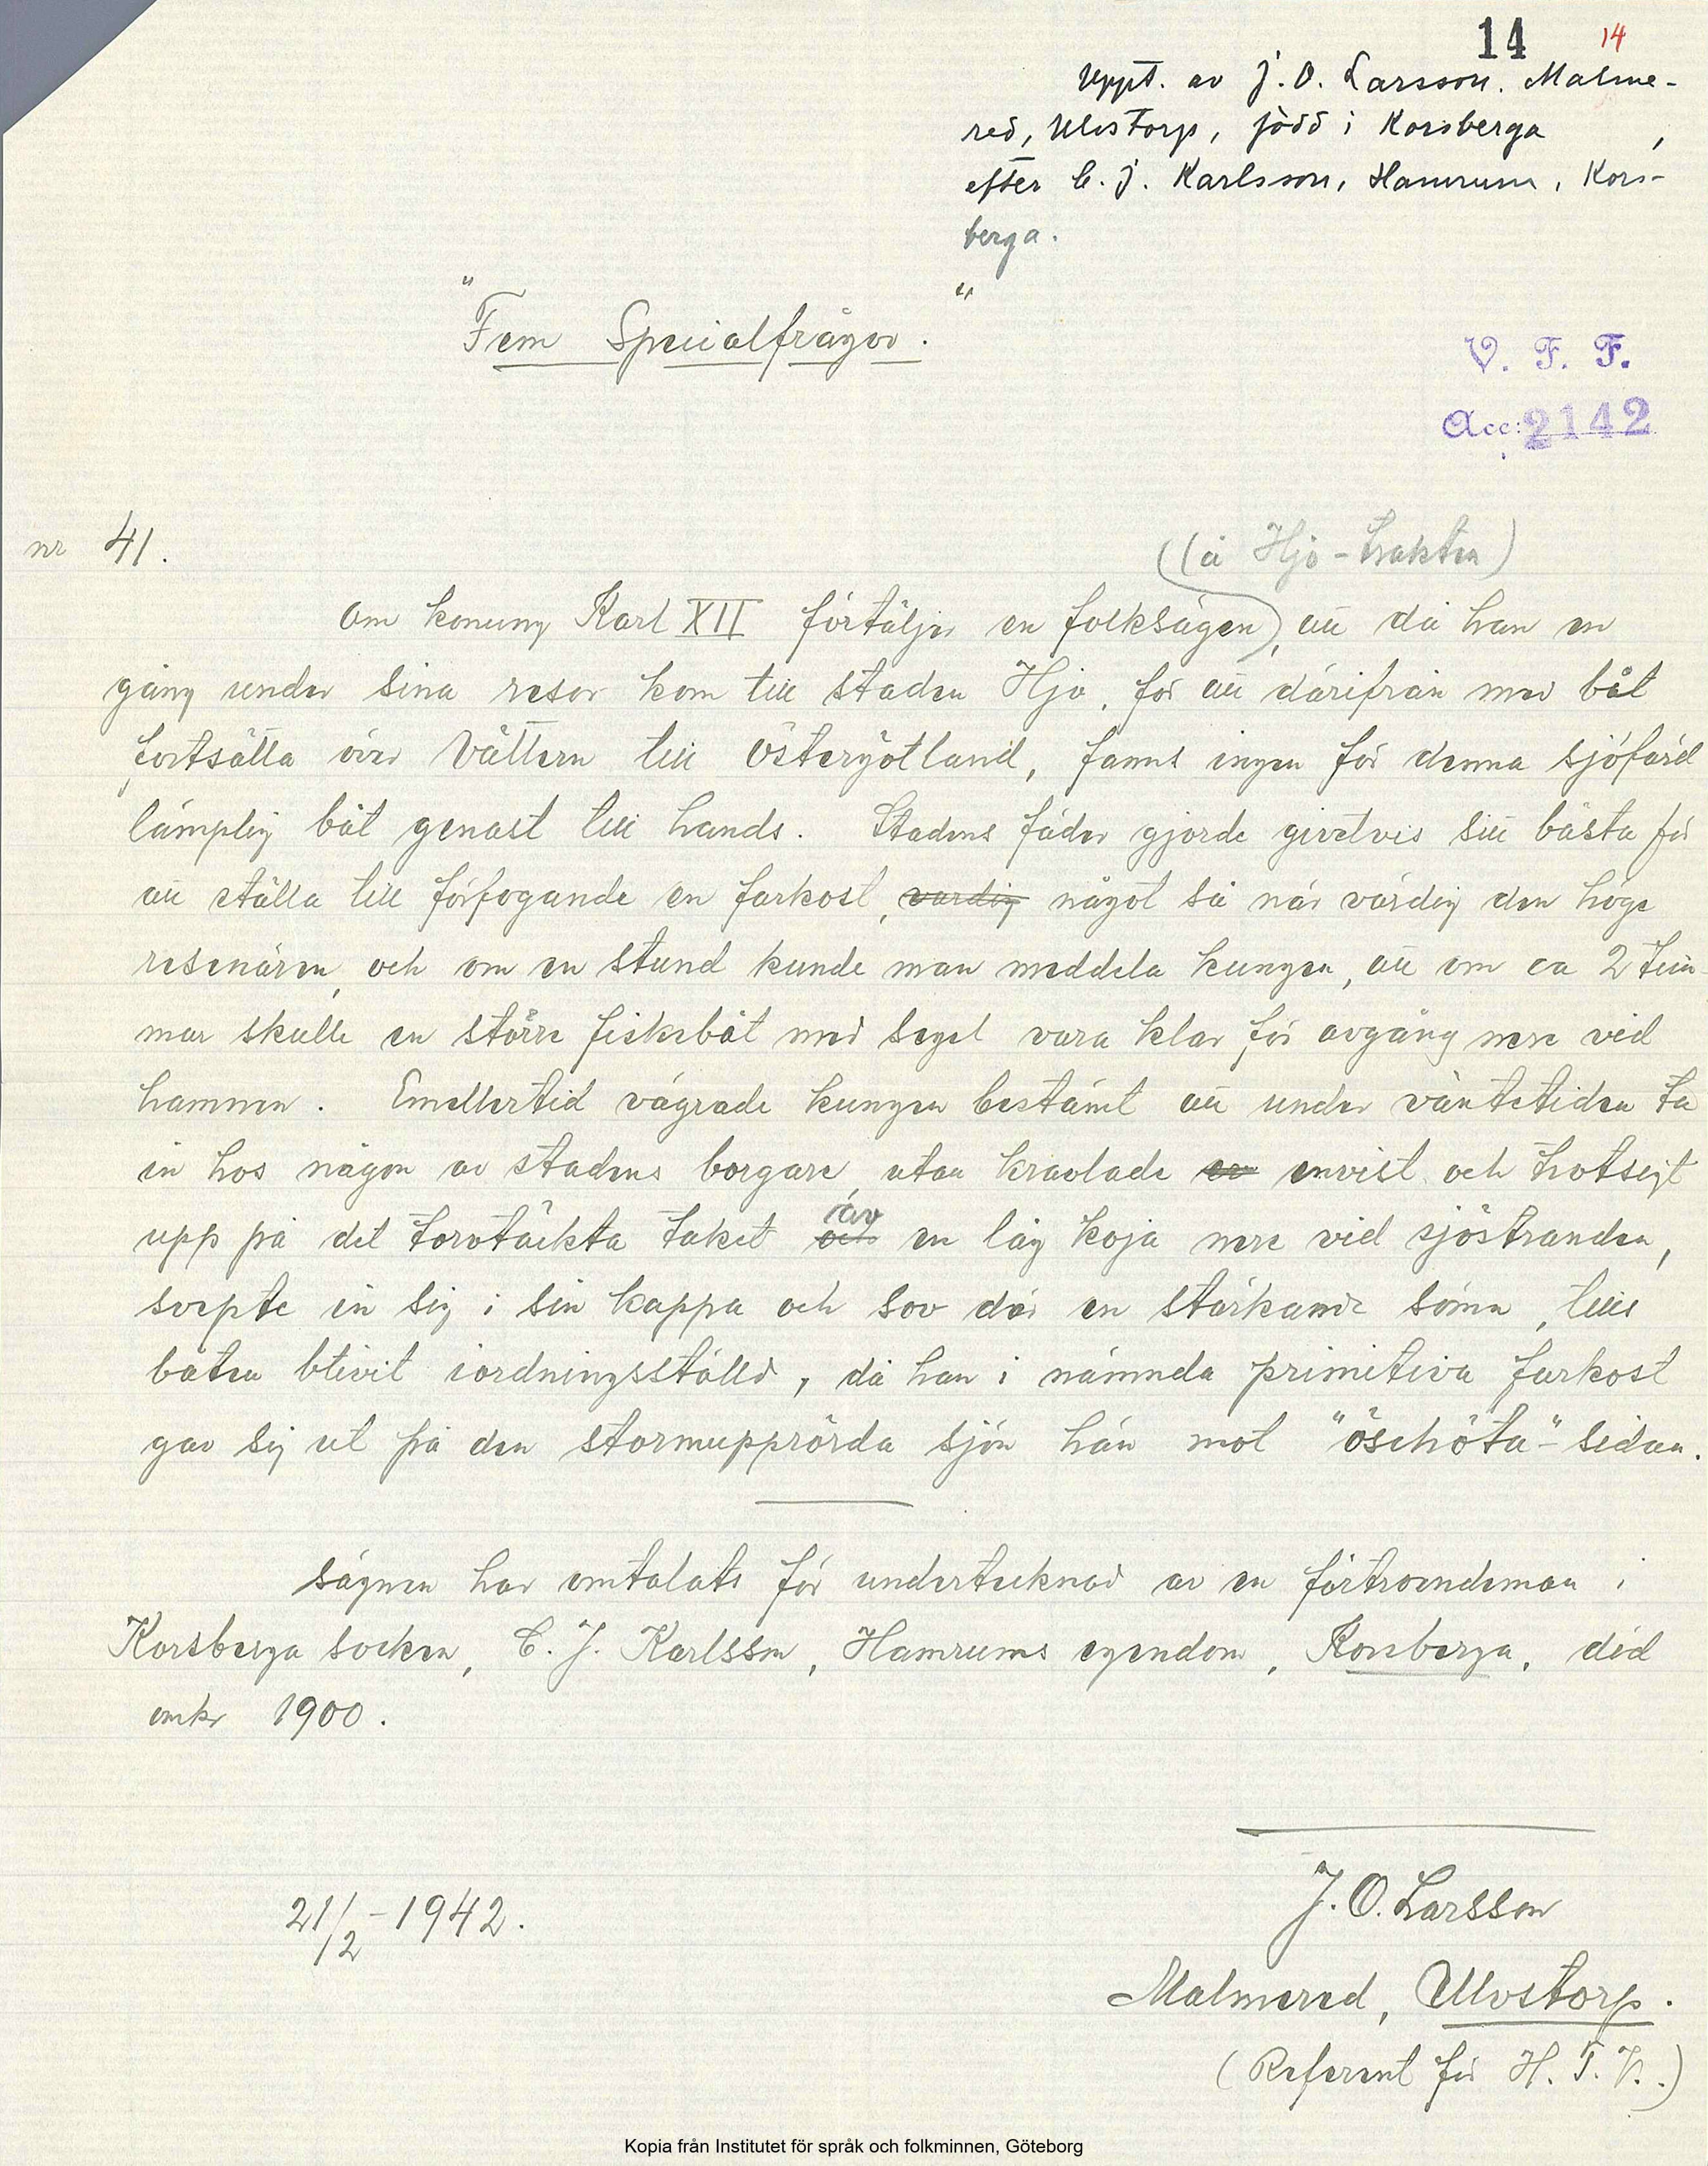 14 14
Uppt. av J. O. Larsson, Malme-
red, Ulvstorp, född i Korsberga,
efter C. J. Karlsson, Hamrum, Kors-
berga.
"Fem Specialfrågor."
V. F. F.
Acc: 2142
nr 41. (i Hjo-trakten)
Om konung Karl XII förtäljer en folksägen, att då han en
gång under sina resor kom till staden Hjo, för att därifrån med båt
fortsätta över Vättern till Östergötland, fanns ingen för denna sjöfärd
lämplig båt genast till hands. Stadens fäder gjorde givetvis sitt bästa för
att ställa till förfogande en farkost, värdig något så när värdig den höge
resenären, och om en stund kunde man meddela kungen, att om ca 2 tim-
mar skulle en större fiskebåt med segel vara klar för avgång nere vid
hamnen. Emellertid vägrade kungen bestämt att under väntetiden ta
in hos någon av stadens borgare, utan kravlade en envist och trotsigt
upp på det torvtäckta taket av en låg koja nere vid sjöstranden,
svepte in sig i sin kappa och sov där en stärkande sömn, tills
båten blivit iordningsställd, då han i nämnda primitiva farkost
gav sig ut på den stormupprörda sjön hän mot "öschöta"-sidan.
Sägnen har omtalats för undertecknad av en förtroendeman i
Korsberga socken, C. J. Karlsson, Hamrums egendom, Korsberga, död
omkr 1900.
21/12-1942.
J. O. Larsson
Malmered, Ulvstorp.
(Referent för H. T. V.)
Kopia från Institutet för språk och folkminnen, Göteborg